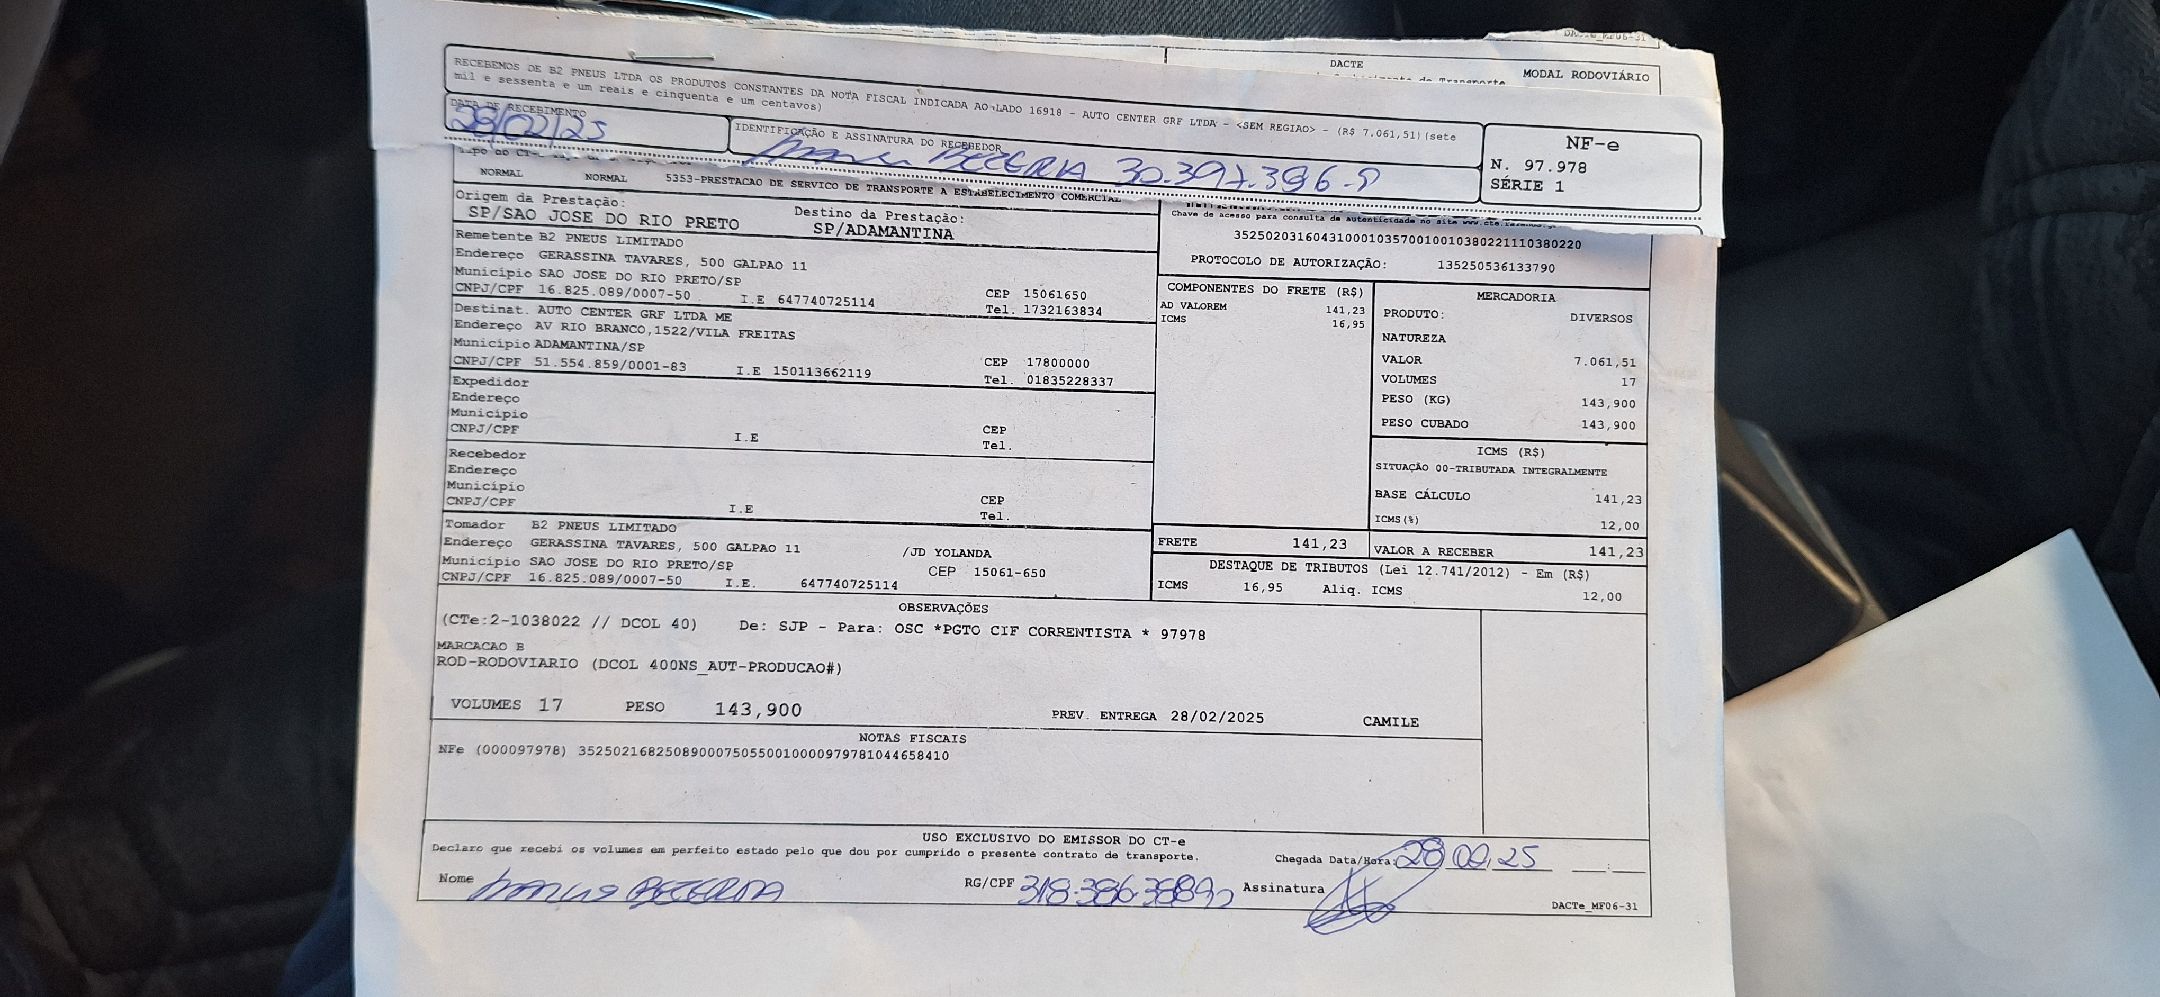 DACTe_MF06-31
DACTE
MODAL RODOVIÁRIO
RECEBEMOS DE B2 PNEUS LTDA OS PRODUTOS CONSTANTES DA NOTA FISCAL INDICADA AO LADO 16918 - AUTO CENTER GRF LTDA - <SEM REGIAO> - (R$ 7.061,51) (sete
mil e sessenta e um reais e cinquenta e um centavos)
DATA DE RECEBIMENTO
28/02/25
IDENTIFICAÇÃO E ASSINATURA DO RECEBEDOR
BEZERRA 30.397.396-9
NF-e
N. 97.978
SÉRIE 1
NORMAL NORMAL 5353-PRESTACAO DE SERVICO DE TRANSPORTE A ESTABELECIMENTO COMERCIAL
Origem da Prestação:
SP/SAO JOSE DO RIO PRETO
Destino da Prestação:
SP/ADAMANTINA
Chave de acesso para consulta de autenticidade no site
35250203160431000103570010010380221110380220
PROTOCOLO DE AUTORIZAÇÃO: 135250536133790
Remetente B2 PNEUS LIMITADO
Endereço GERASSINA TAVARES, 500 GALPAO 11
Município SAO JOSE DO RIO PRETO/SP CEP 15061650
CNPJ/CPF 16.825.089/0007-50 I.E 647740725114 Tel. 1732163834
Destinat. AUTO CENTER GRF LTDA ME
Endereço AV RIO BRANCO,1522/VILA FREITAS
Município ADAMANTINA/SP CEP 17800000
CNPJ/CPF 51.554.859/0001-83 I.E 150113662119 Tel. 01835228337
Expedidor
Endereço
Município CEP
CNPJ/CPF I.E Tel.
Recebedor
Endereço
Município CEP
CNPJ/CPF I.E Tel.
Tomador B2 PNEUS LIMITADO
Endereço GERASSINA TAVARES, 500 GALPAO 11 /JD YOLANDA
Município SAO JOSE DO RIO PRETO/SP CEP 15061-650
CNPJ/CPF 16.825.089/0007-50 I.E. 647740725114
COMPONENTES DO FRETE (R$)
AD VALOREM 141,23
ICMS 16,95
FRETE 141,23
MERCADORIA
PRODUTO: DIVERSOS
NATUREZA
VALOR 7.061,51
VOLUMES 17
PESO (KG) 143,900
PESO CUBADO 143,900
ICMS (R$)
SITUAÇÃO 00-TRIBUTADA INTEGRALMENTE
BASE CÁLCULO 141,23
ICMS(%) 12,00
VALOR A RECEBER 141,23
DESTAQUE DE TRIBUTOS (Lei 12.741/2012) - Em (R$)
ICMS 16,95 Aliq. ICMS 12,00
OBSERVAÇÕES
(CTe:2-1038022 // DCOL 40) De: SJP - Para: OSC *PGTO CIF CORRENTISTA * 97978
MARCACAO B
ROD-RODOVIARIO (DCOL 400NS_AUT-PRODUCAO#)
VOLUMES 17 PESO 143,900 PREV. ENTREGA 28/02/2025 CAMILE
NOTAS FISCAIS
NFe (000097978) 35250216825089000750550010000979781044658410
USO EXCLUSIVO DO EMISSOR DO CT-e
Declaro que recebi os volumes em perfeito estado pelo que dou por cumprido o presente contrato de transporte.
Chegada Data/Hora: 28 02 25
Nome BEZERRA RG/CPF Assinatura
DACTe_MF06-31